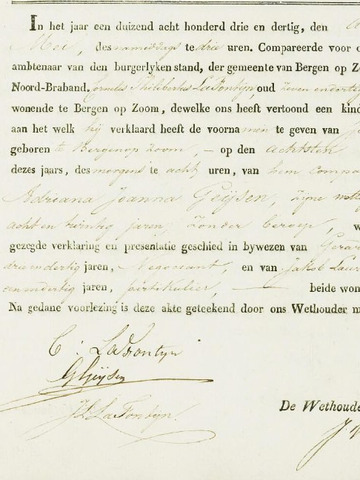 In het jaar een duizend acht honderd drie en dertig, den
Mei, des namiddags te drie uren. Compareerde voor o
ambtenaar van den burgerlyken stand, der gemeente van Bergen op Zo
Noord-Braband. LaFontyn oud zeven en dertig
wonende te Bergen op Zoom, dewelke ons heeft vertoond een kind
aan het welk hij verklaard heeft de voornamen te geven van
geboren te Bergen op Zoom, — op den achtsten
dezes jaars, des morgens te acht uren, van hem Compa
Adriana Joanna Geijsen, zyne
acht en twintig jaren, zonder beroep, w
gezegde verklaring en presentatie geschied in bywezen van Gerar
jaren, Negotiant, en van Jakob
jaren, particulier, — beide won
Na gedane voorlezing is deze akte geteekend door ons Wethouder m
C: LaFontyn
G Geijsen
LaFontyn.
De Wethoude